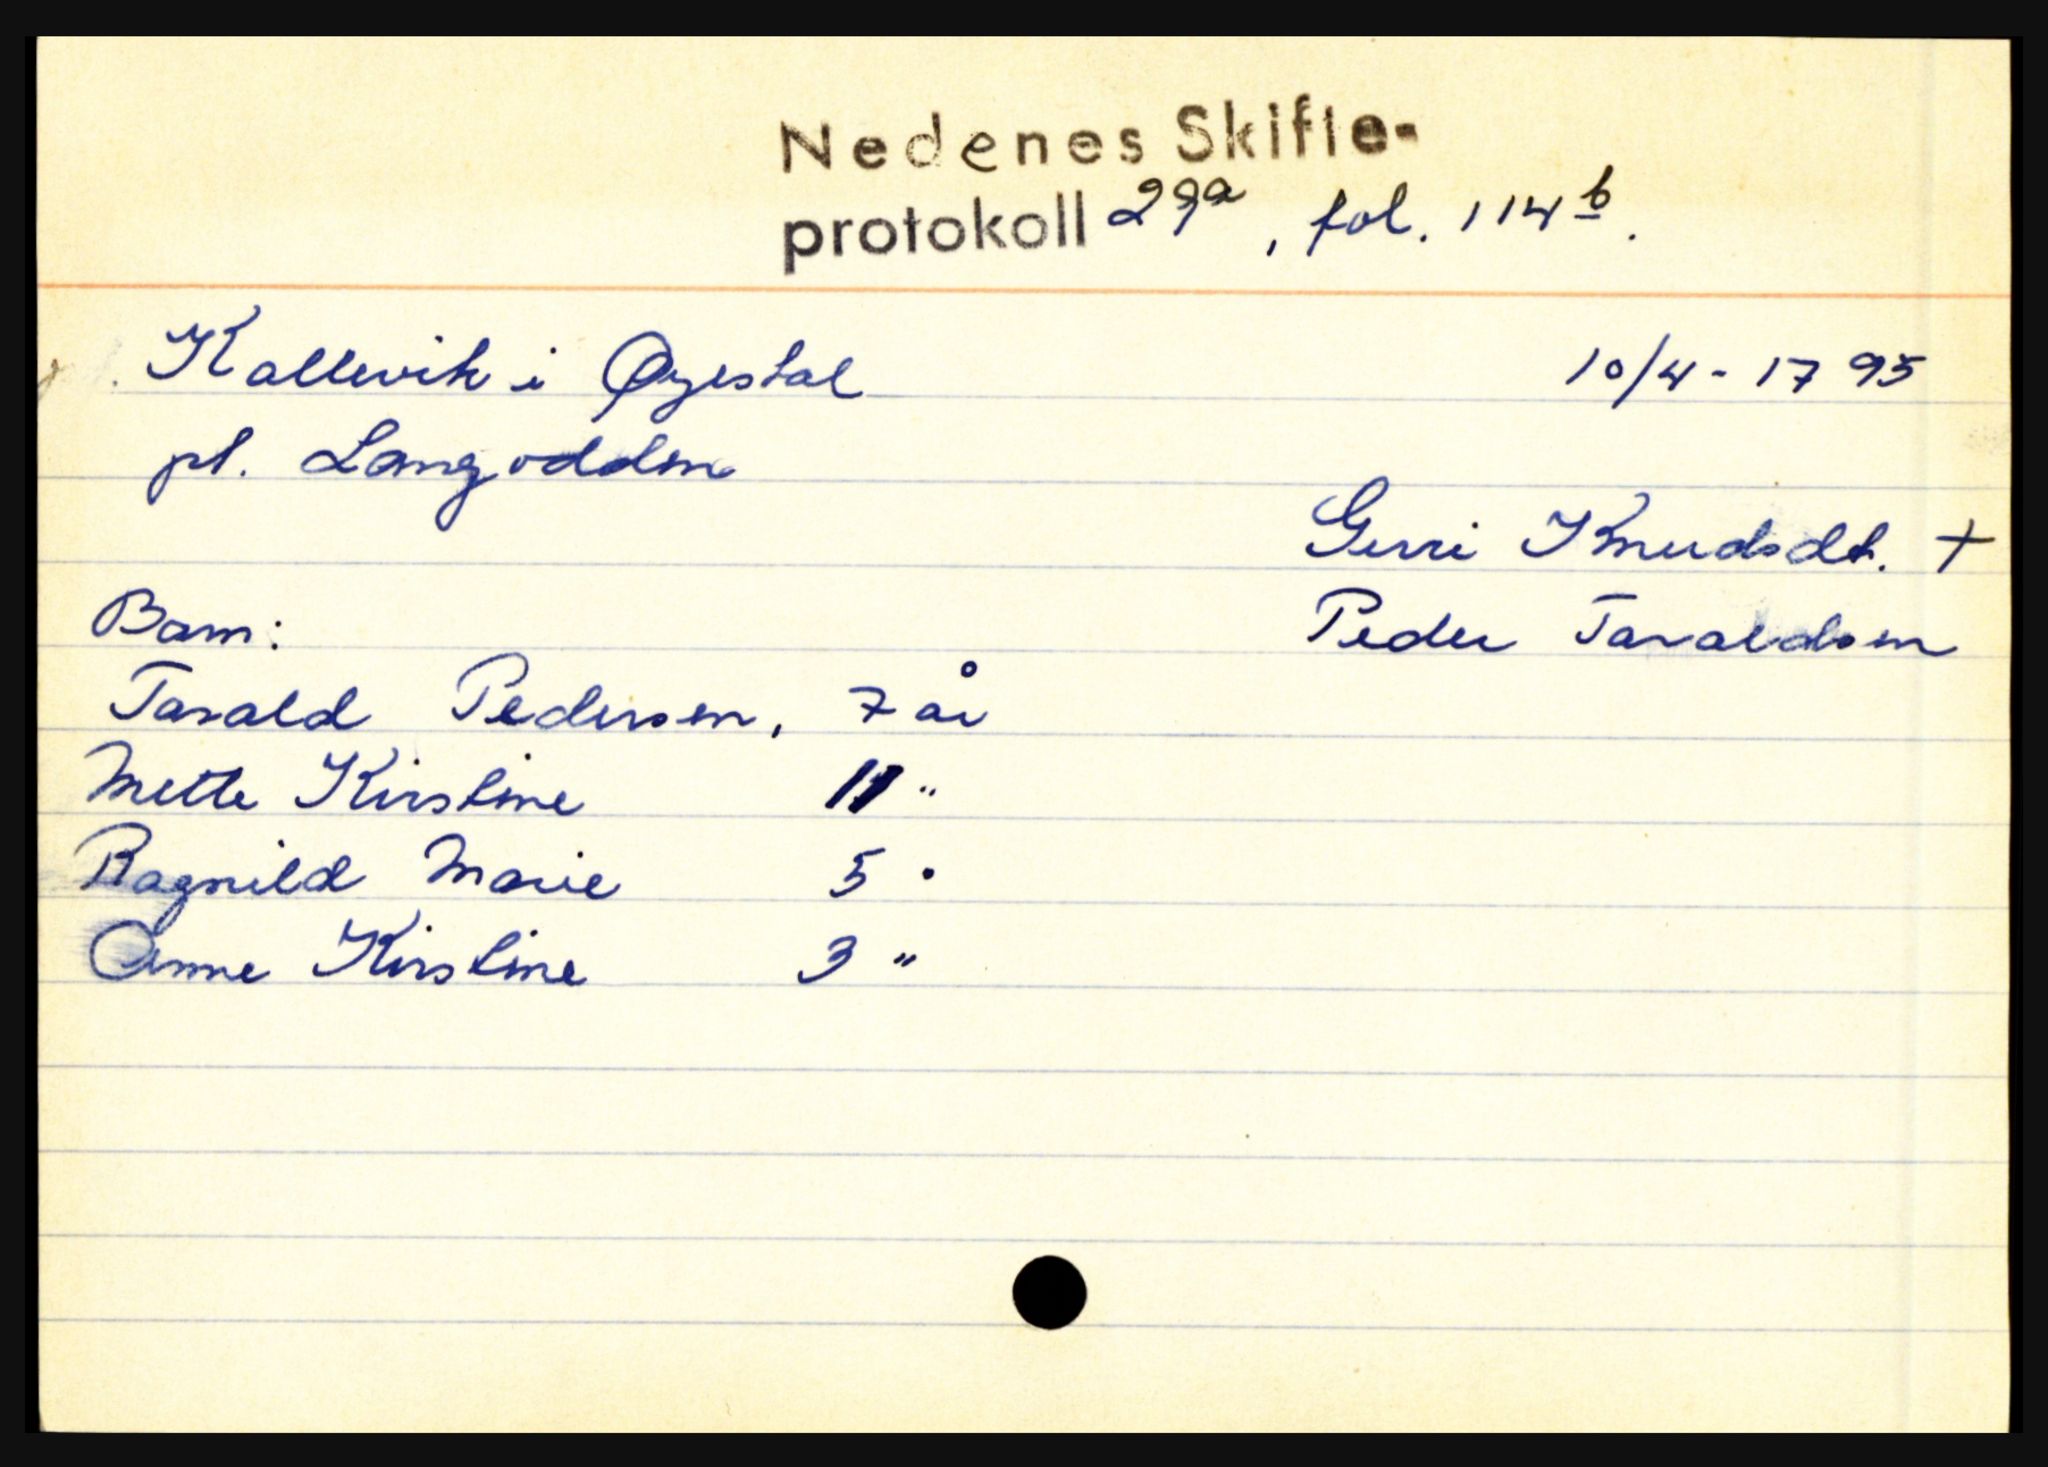 Nedenes Skifte-
protokoll 29a, fol. 114b.
Kallevik i Øyestad 10/4-1795
pl. Langodden
Gurri Knudsdt. +
Barn: Peder Taraldsen
Tarald Pedersen, 7 år
Mette Kirstine 11 "
Ragnild Marie 5 "
Anne Kirstine 3 "